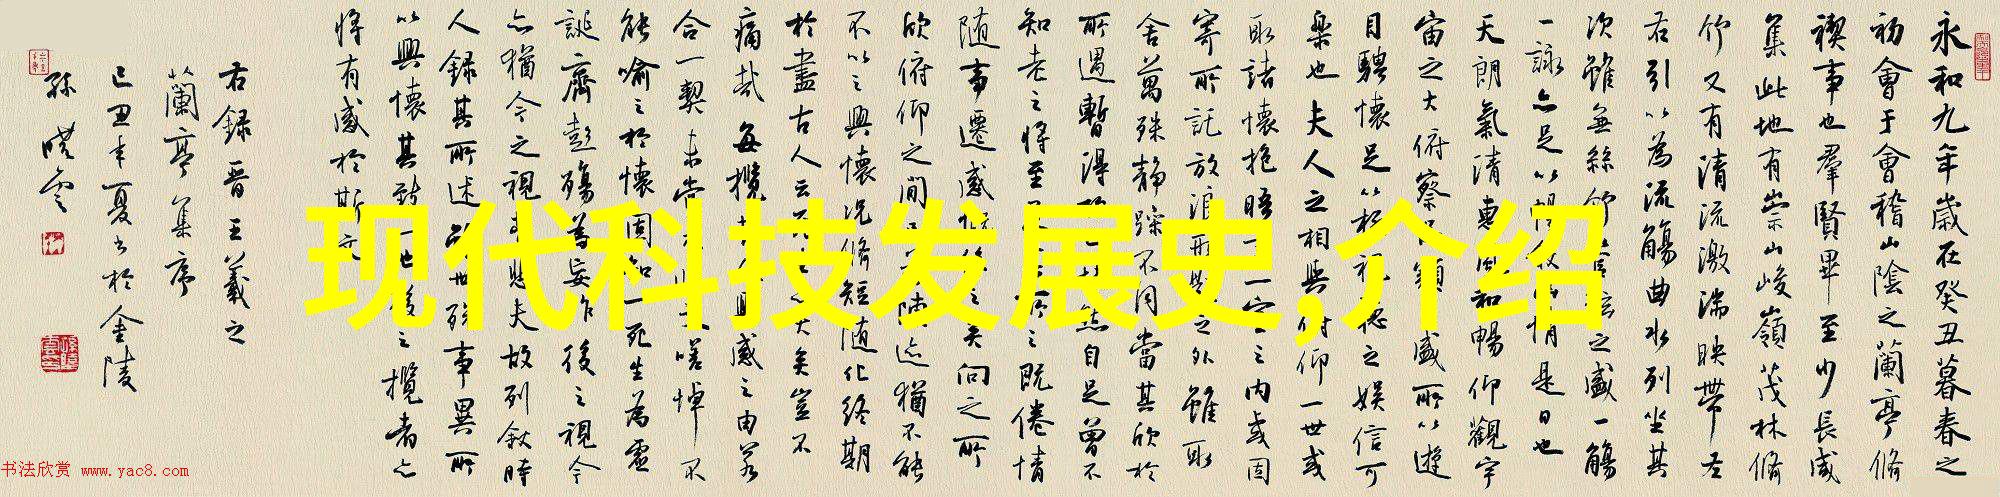 永和九年歲在癸丑暮春之
初會于會稽山陰之蘭亭脩
禊事也羣賢畢至少長咸
集此地有崇山峻嶺茂林脩
竹又有清流激湍映帶左
右引以為流觴曲水列坐其
次雖無絲竹管弦之盛一觴
一詠亦足以暢敘幽情是日也
天朗氣清惠風和暢仰觀宇
宙之大俯察品類之盛所以遊
目騁懷足以極視聽之娛信可
樂也夫人之相與俯仰一世或
取諸懷抱晤言一室之內或因
寄所託放浪形骸之外雖取
舍萬殊靜躁不同當其欣於
所遇暫得於己快然自足曾不
知老之將至及其所之既倦情
隨事遷感慨係之矣向之所
欣俯仰之間以為陳迹猶不能
不以之興懷況脩短隨化終期
於盡古人云死生亦大矣豈不
痛哉每攬昔人興感之由若
合一契未嘗不臨文嗟悼不
能喻之於懷固知一死生為虛
誕齊彭殤為妄作後之視今
亦猶今之視昔悲夫故列敘時
人錄其所述雖世殊事異所
以興懷其致一也後之攬者亦
將有感於斯文
右錄晉王羲之
蘭亭集序
己丑年夏書於金陵
孫曉雲
现代科技发展史,介绍
书法欣赏 www.yac8.com